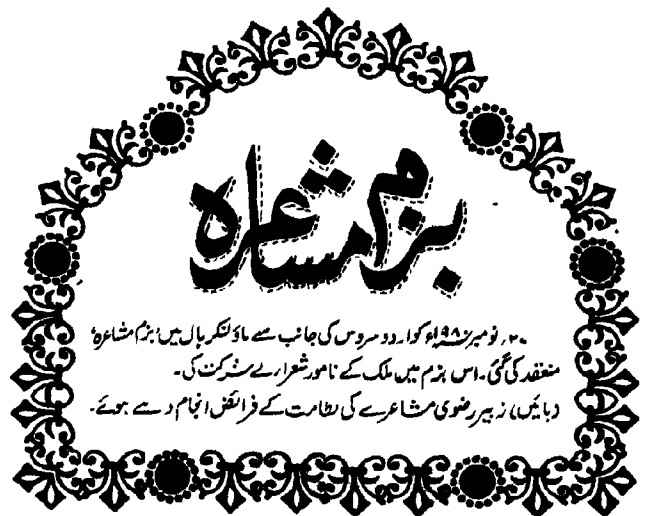 بزم مشاعرہ
۲۰؍ نومبر ۱۹۸۰ء کو اردو سروس کی جانب سے ماؤلنکر ہال میں 'بزم مشاعرہ'
منعقد کی گئی۔ اس بزم میں ملک کے نامور شعراء نے شرکت کی۔
(بائیں) زبیر رضوی مشاعرے کی نظامت کے فرائض انجام دیتے ہوئے۔